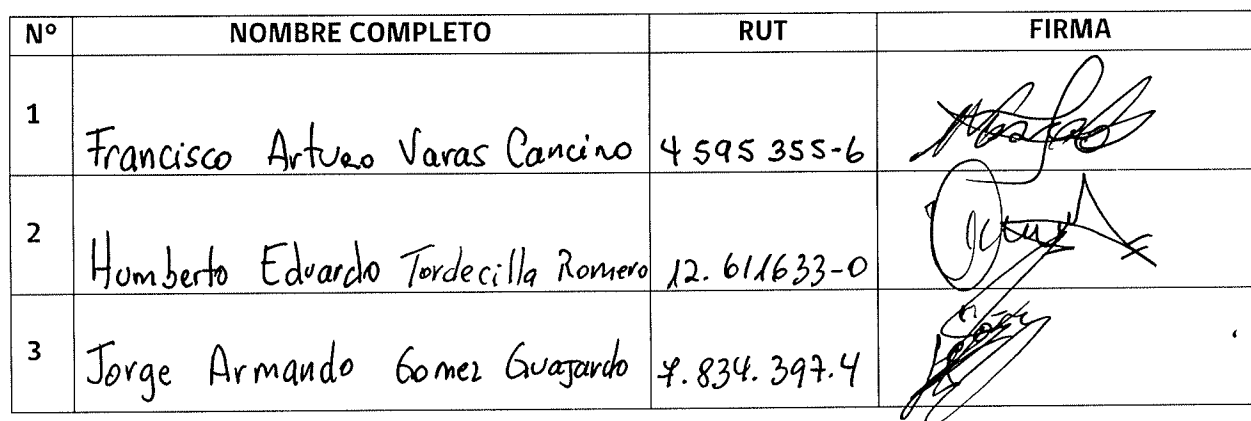 Nº NOMBRE COMPLETO RUT FIRMA
1 Francisco Arturo Varas Cancino 4 595 355-6
2 Humberto Eduardo Tordecilla Romero 12.611633-0
3 Jorge Armando Gomez Guajardo 7.834.397.4